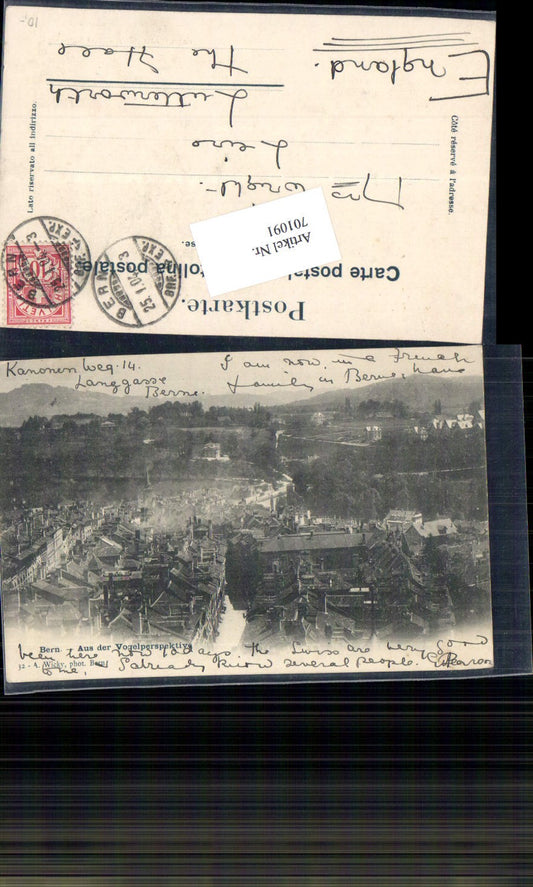 Postkarte.
Carte postale
Côté réservé à l'adresse.
Lato riservato all indirizzo.
Artikel Nr.
701091
Mrs Wright
Leire
Lutterworth
England.
BERN
25.1.0
10.-
Kanonen Weg. 14.
Langgasse
Berne.
I am now in a French
family in Berne, have
Bern Aus der Vogelperspektive
been here now 10 days the Swiss are very good
32 - A. Wicky, phot. Bern
to me, I already know several people.